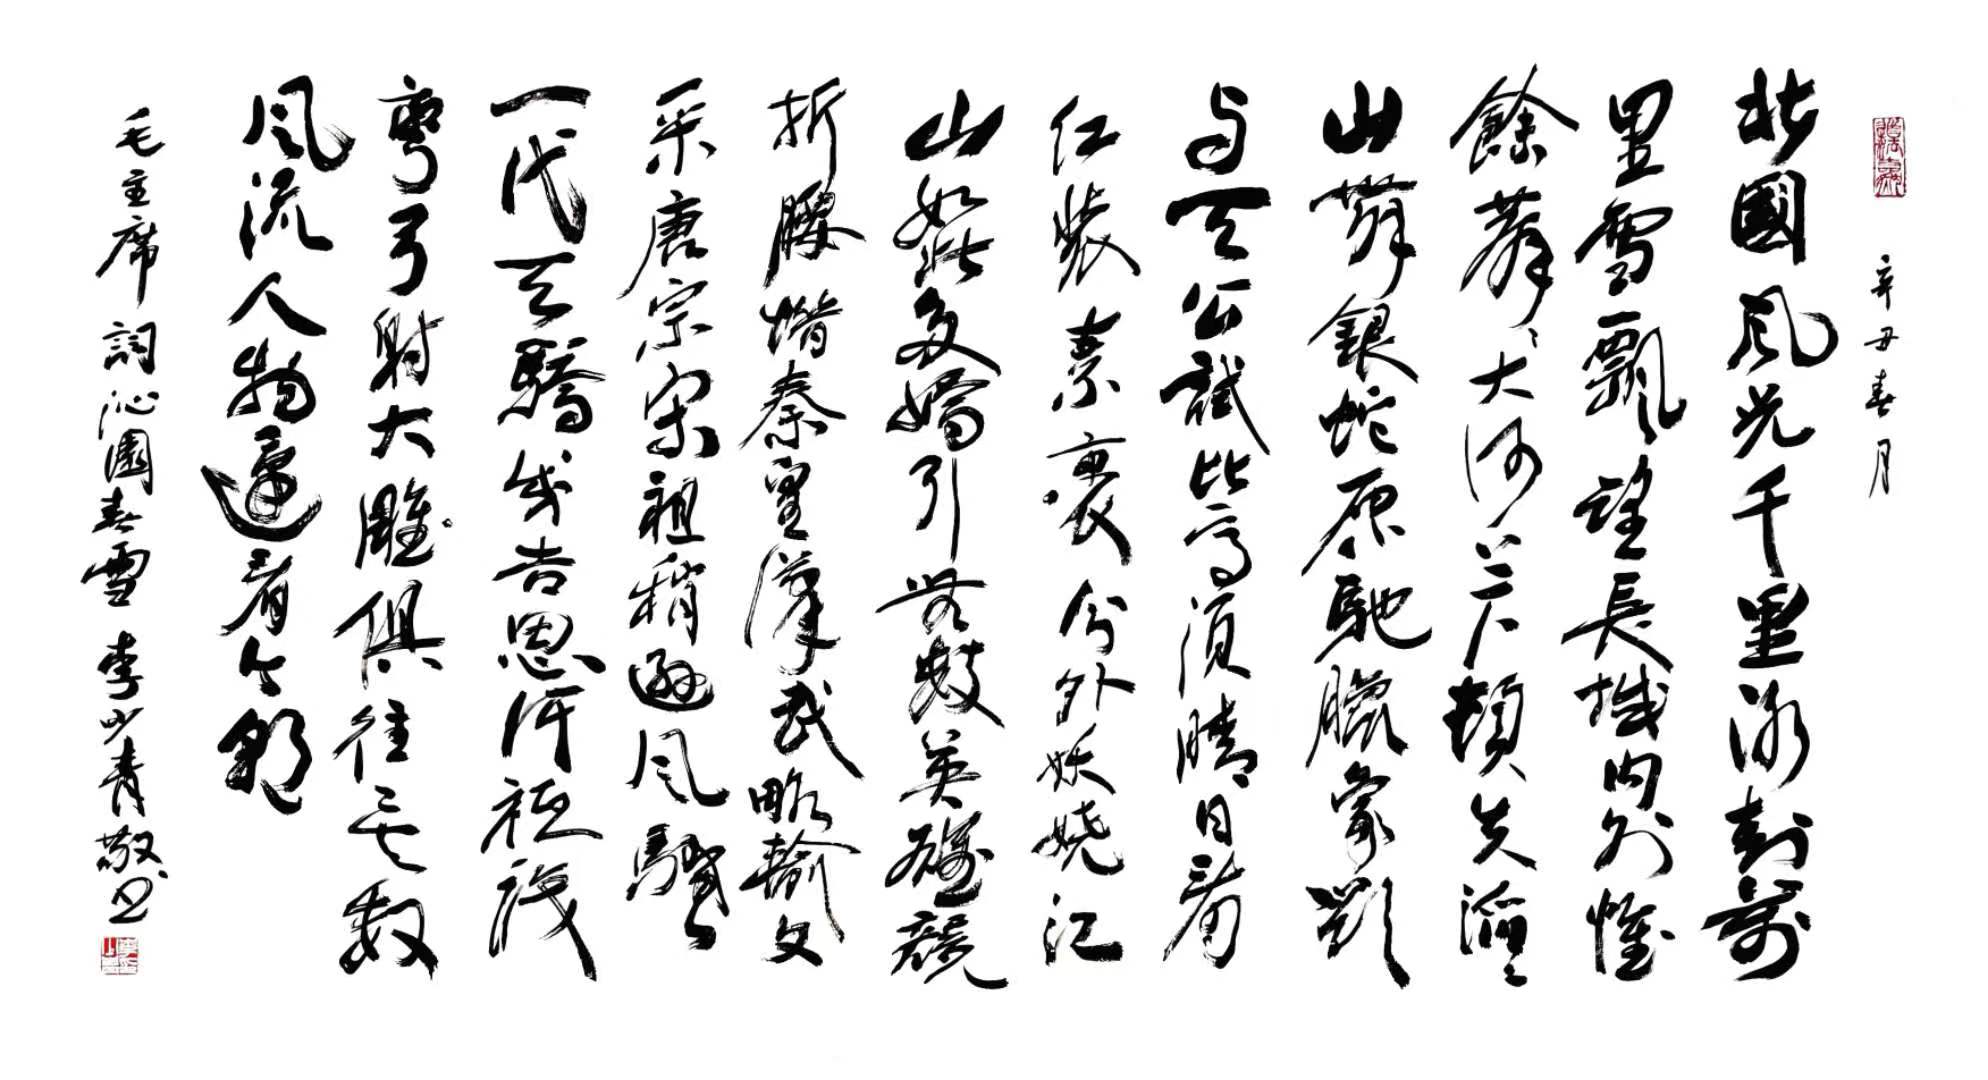 辛丑春月
北國風光千里冰封萬
里雪飄望長城內外惟
餘莽莽大河上下頓失滔滔
山舞銀蛇原馳臘象欲
與天公試比高須晴日看
紅裝素裹分外妖嬈江
山如此多嬌引無數英雄競
折腰惜秦皇漢武略輸文
采唐宗宋祖稍遜風騷
一代天驕成吉思汗祗識
彎弓射大雕俱往矣數
風流人物還看今朝
毛主席詞沁園春雪 李少青敬书